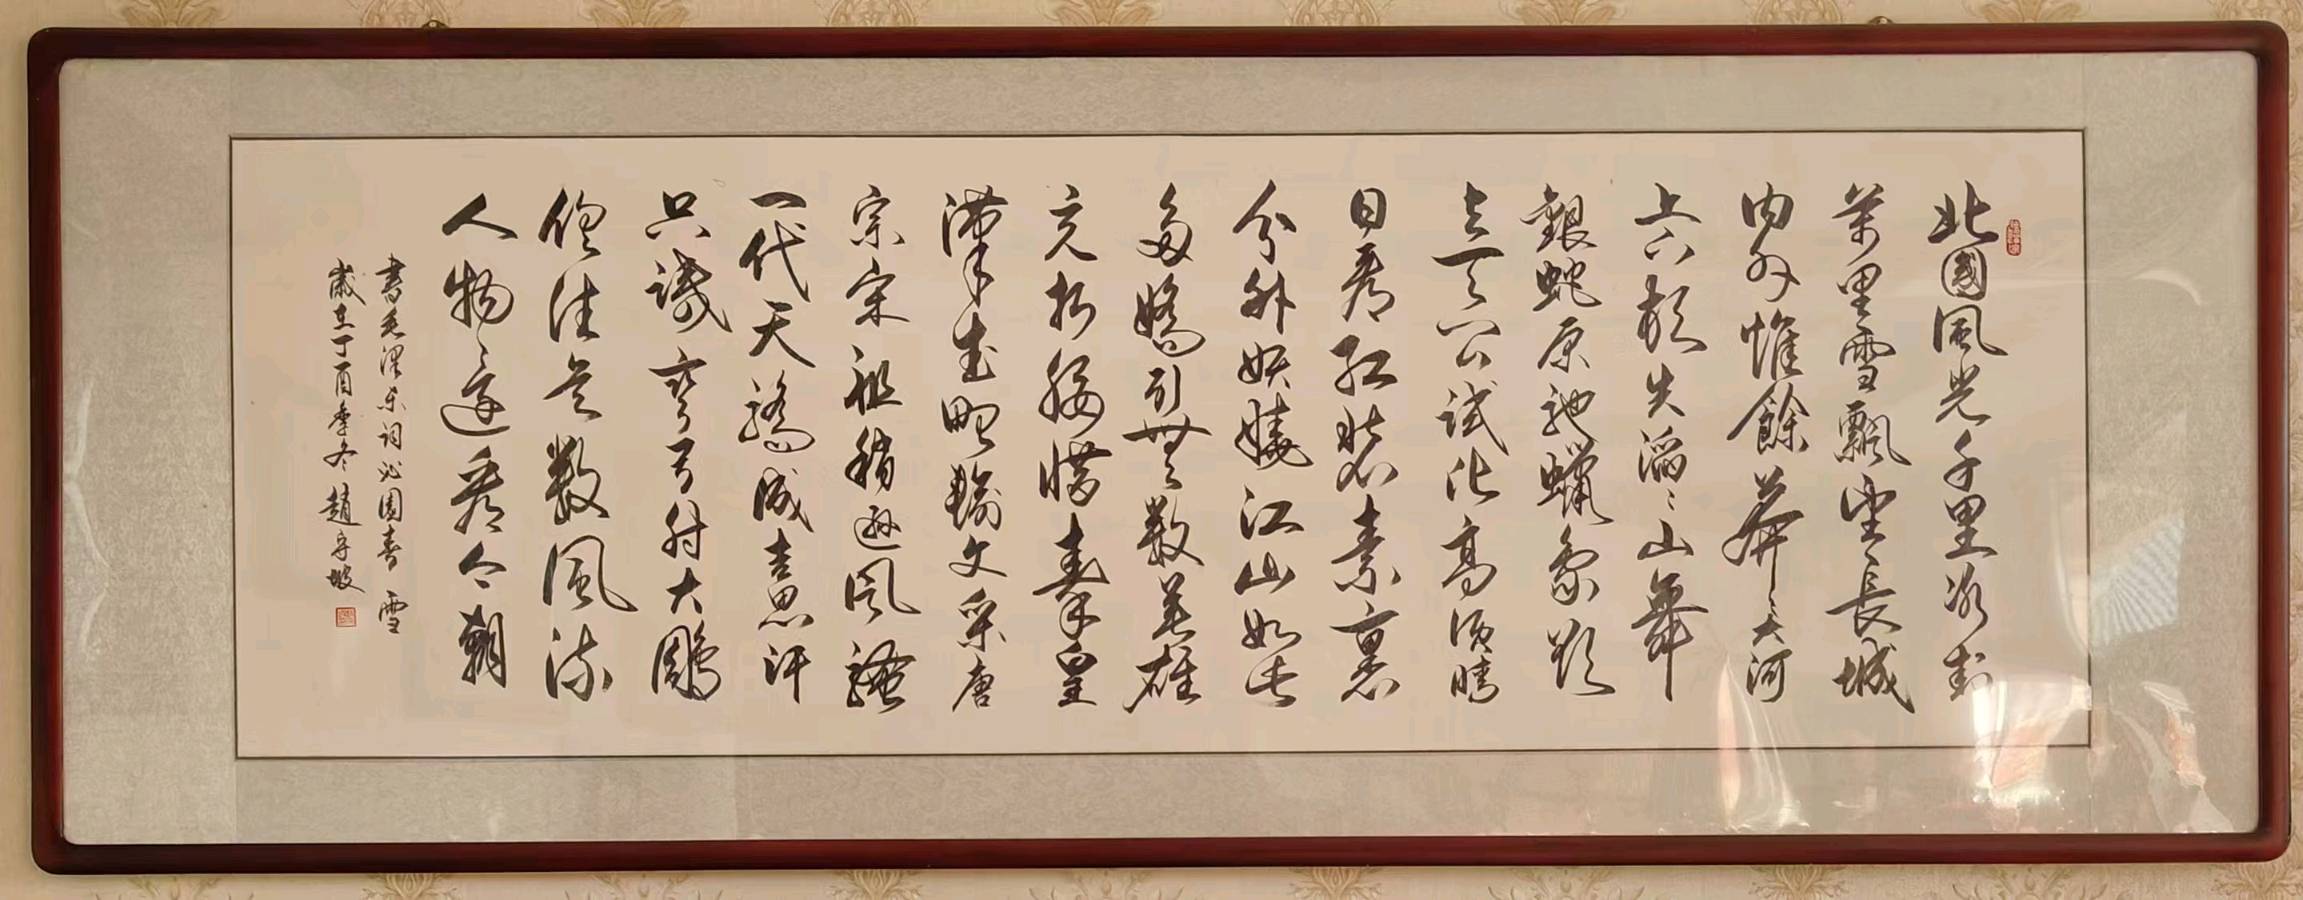 北國風光千里冰封
萬里雪飄望長城
内外惟餘莽々大河
上下頓失滔々山舞
銀蛇原馳蠟象欲
与天公試比高須晴
日看紅裝素裹
分外妖嬈江山如此
多嬌引無數英雄
竞折腰惜秦皇
漢武略輸文采唐
宗宋祖稍遜風騷
一代天驕成吉思汗
只識彎弓射大鵰
俱往矣數風流
人物還看今朝
書毛澤東詞沁園春 雪
歲在丁酉季冬 趙守坡